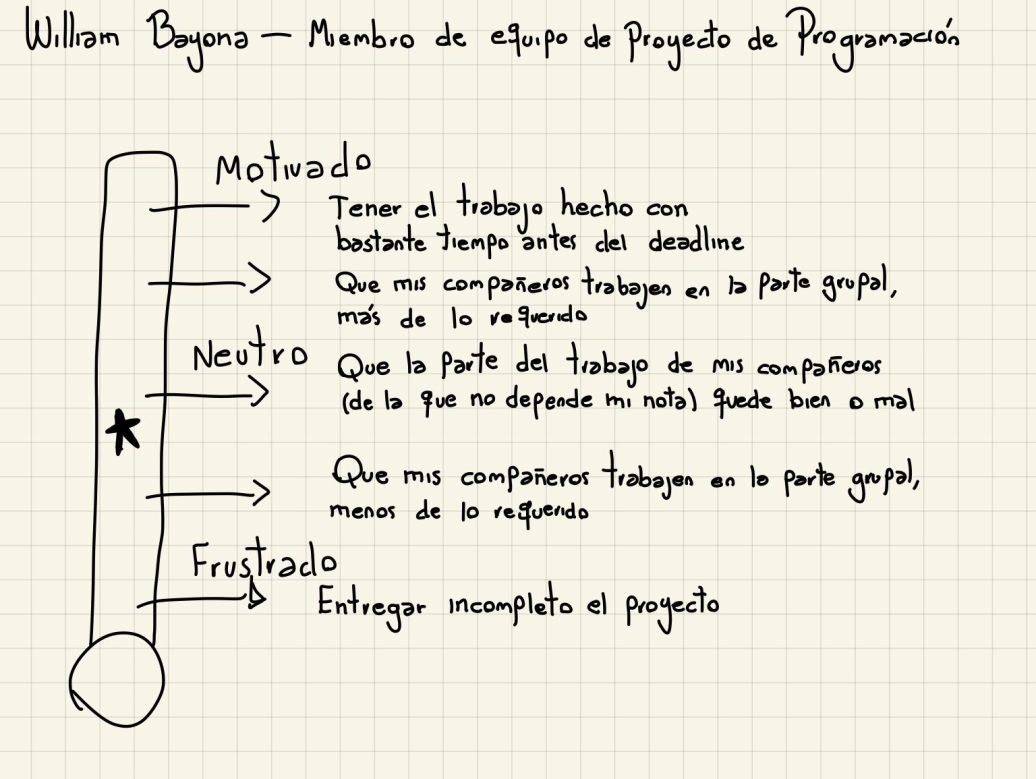 William Bayona — Miembro de equipo de Proyecto de Programación
Motivado
Tener el trabajo hecho con
bastante tiempo antes del deadline
Que mis compañeros trabajen en la parte grupal,
más de lo requerido
Neutro
Que la parte del trabajo de mis compañeros
(de la que no depende mi nota) quede bien o mal
Que mis compañeros trabajen en la parte grupal,
menos de lo requerido
Frustrado
Entregar incompleto el proyecto